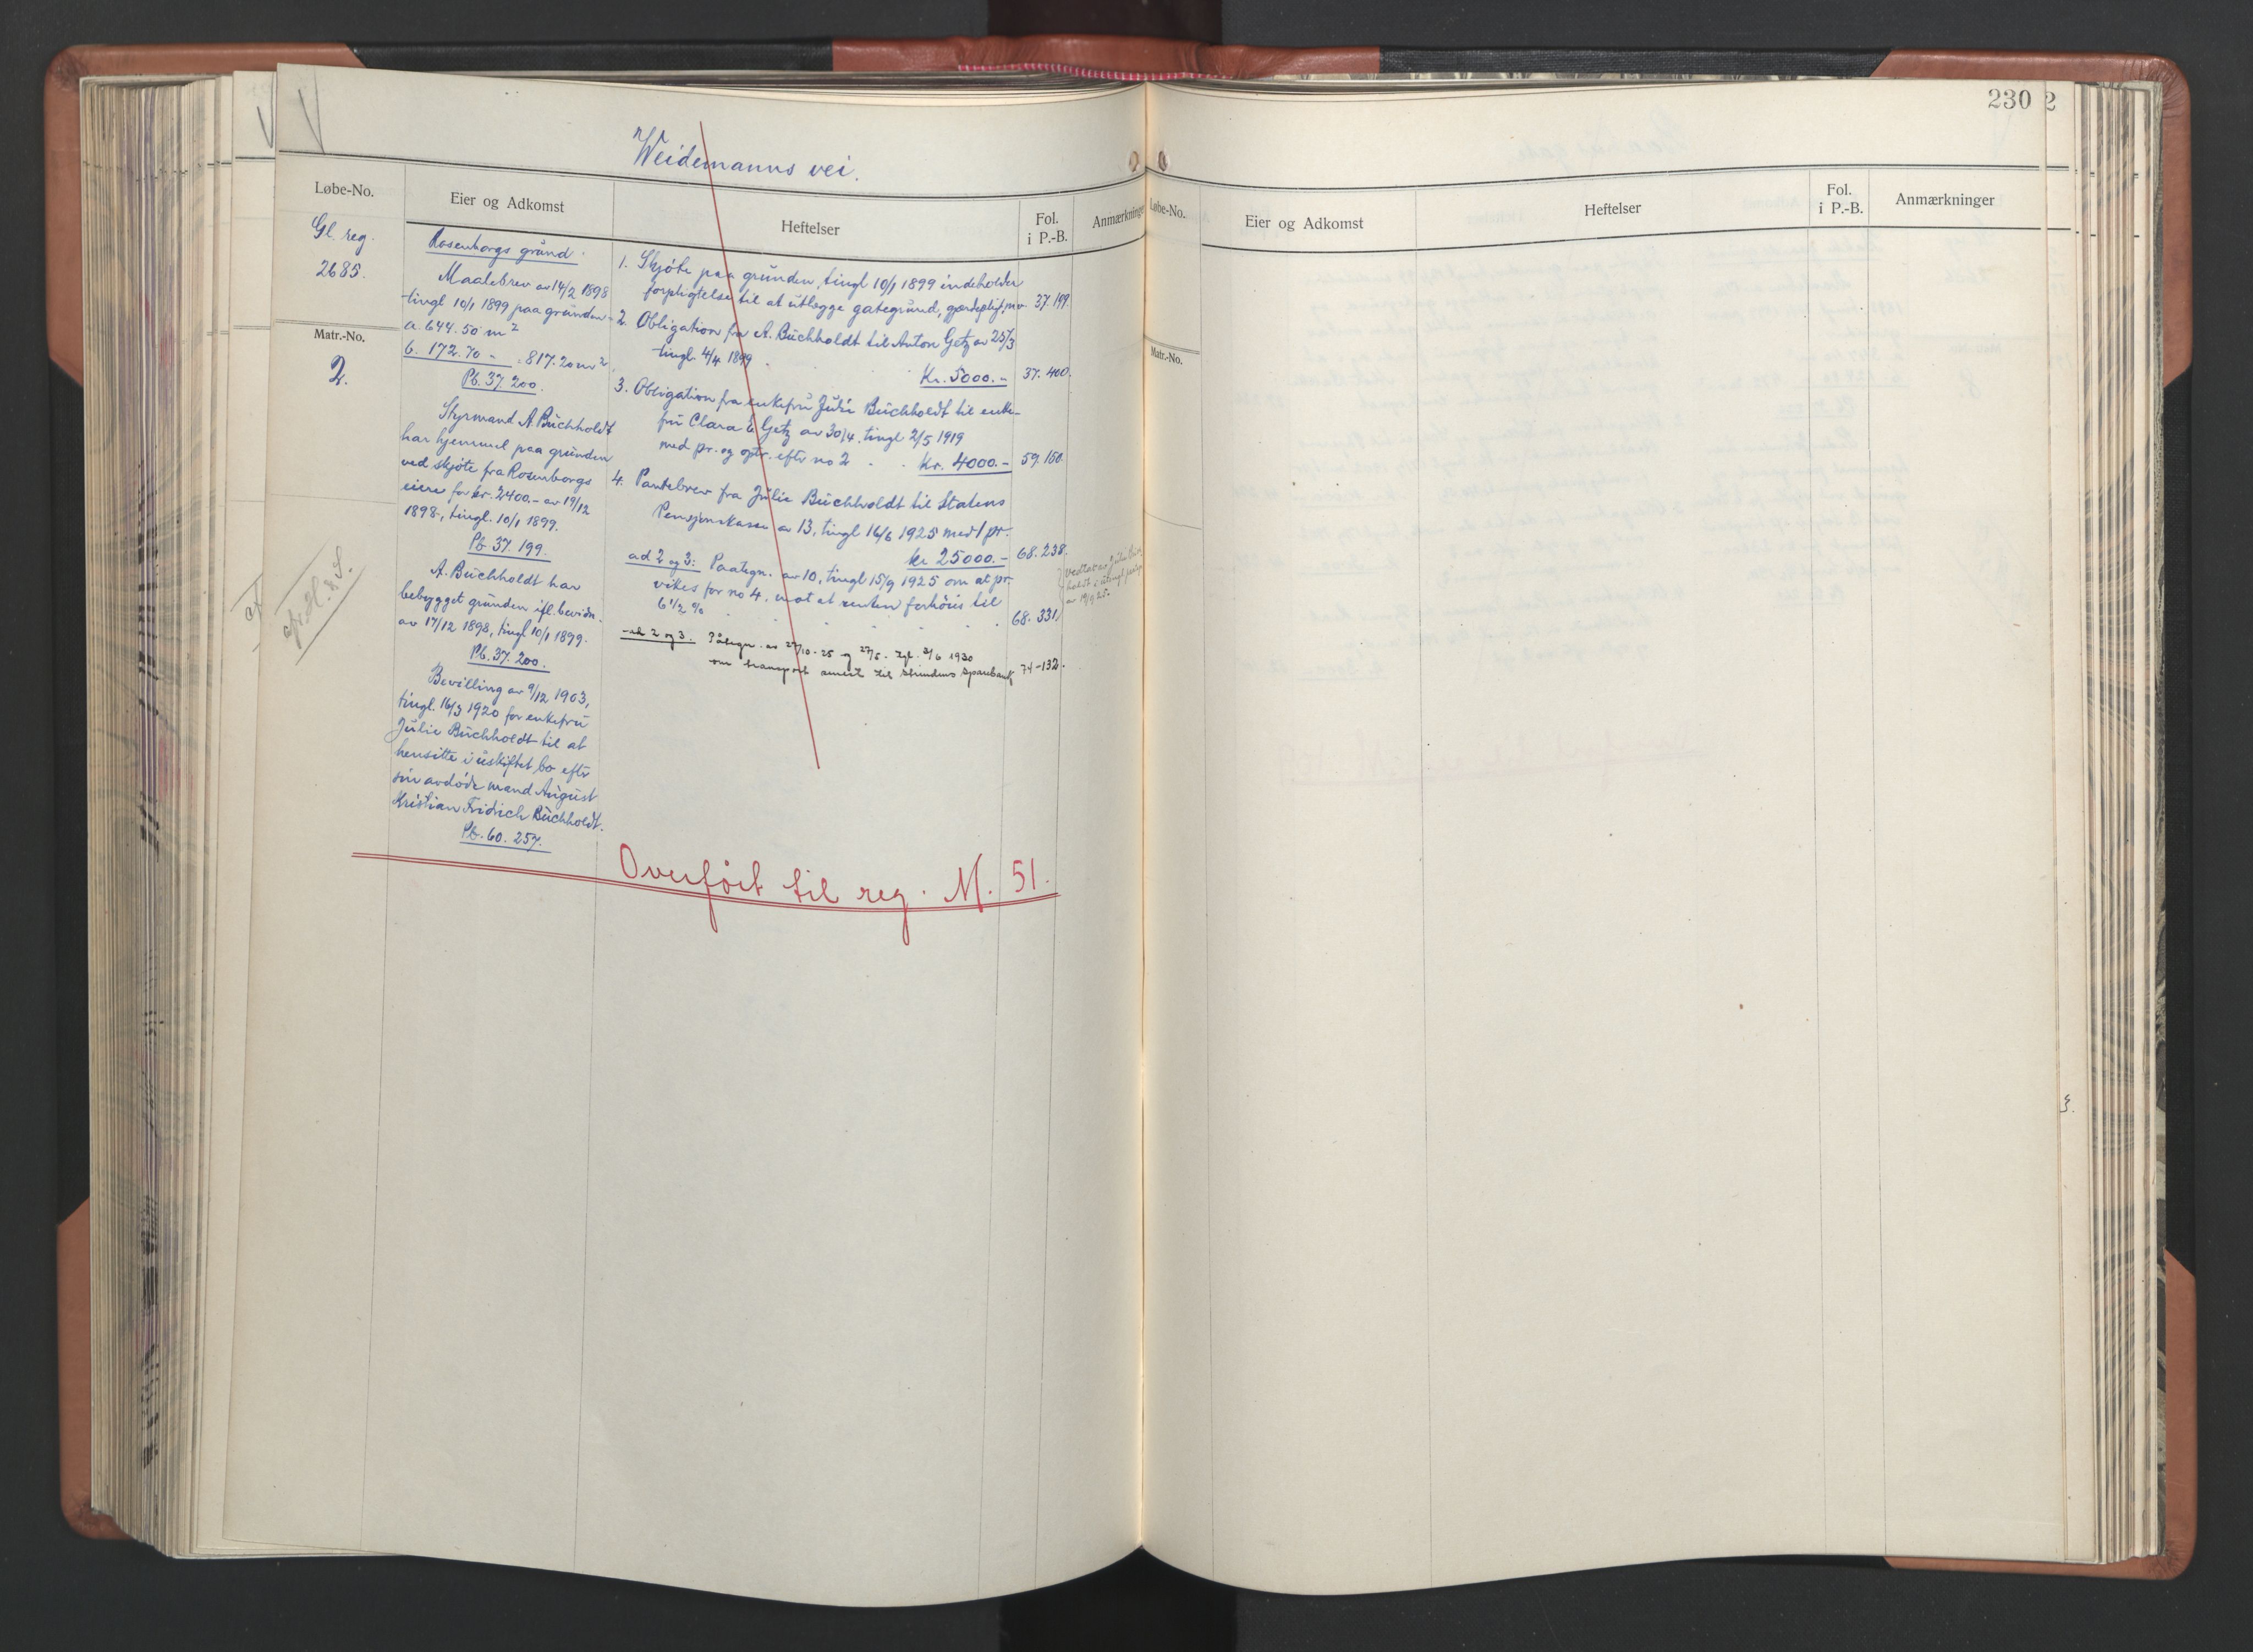 Weidemanns vei.
Løbe-No.
Gl. reg.
2685.
Matr.-No.
2.
Eier og Adkomst
Rosenborgs grund.
Maalebrev av 14/2 1898
tingl 10/1 1899 paa grunden
a. 644.50 m²
b. 172.70 - = 817.20 m²
Pb. 37. 200.
Styrmand A. Buchholdt
har hjemmel paa grunden
ved skjøte fra Rosenborgs
eiere for kr. 2400.- av 19/12
1898, tingl. 10/1 1899.
Pb 37. 199.
A. Buchholdt har
bebygget grunden ifl. bevidn.
av 17/12 1898, tingl 10/1 1899.
Pb. 37. 200.
Bevilling av 9/12 1903,
tingl. 16/3 1920 for enkefru
Julie Buchholdt til at
hensitte i uskiftet bo eftr
sin avdøde mand August
Kristian Fridrich Buchholdt.
Pb. 60. 257.
Heftelser
Fol.
i P.-B.
Anmærkninger
1. Skjøte paa grunden, tingl 10/1 1899 indeholder
forpligtelse til at utlegge gategrund, gjerdepligt, mv 37. 199.
2. Obligation fra A. Buchholdt til Anton Getz av 25/3
tingl. 4/4 1899 Kr. 5000.- 37. 400.
3. Obligation fra enkefru Julie Buchholdt til enke-
fru Clara Getz av 30/4, tingl 2/5 1919
med pr. og optr. eftr no 2 Kr. 4000.- 59. 160.
4. Pantebrev fra Julie Buchholdt til Statens
Pensjonskasse av 13, tingl 16/6 1925 med 1 pr.
kr 25000.- 68. 238.
ad 2 og 3: Paategn. av 10, tingl 15/9 1925 om at pr.
vikes for no 4, mot at renten forhöies til
6 1/2 % 68. 331.
ad 2 og 3. Påtegn. av 27/10-25 og 27/5. tgl. 3/6 1930
om transport senest til Strindens Sparebank 74-132.
Overfört til reg. M. 51.
230
2
Løbe-No.
Matr.-No.
Eier og Adkomst
Heftelser
Fol.
i P.-B.
Anmærkninger
3.